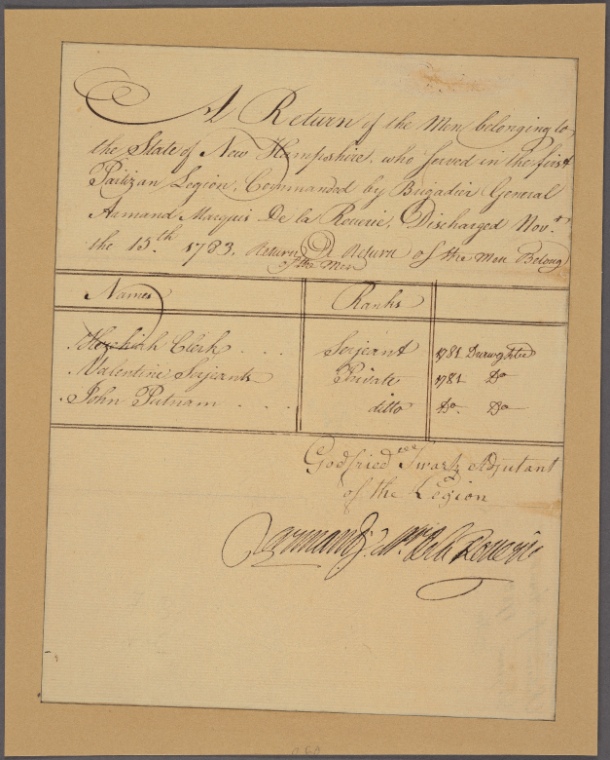 A Return of the Men belonging to
the State of New Hampshire, who served in the first
Partizan Legion, Commanded by Brigadier General
Armand Marquis De la Rouerie, Discharged Nov.r
the 15.th 1783. Return A Return of the Men Belong
of the Men
Names Ranks
Hezekiah Clerk . . . . Serjeant 1781 Draughted
Valentine Serjeants Private 1781 Do
John Putnam . . . . ditto Do. Do
Godfried Swartz Adjutant
of the Legion
armand Mqis De la Rouerie